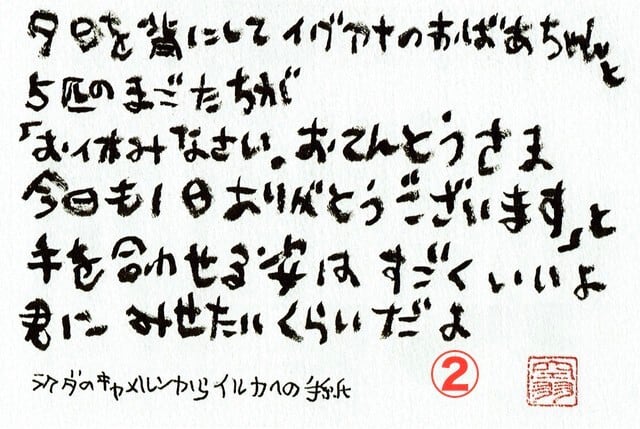 夕日を背にしてイヴアナのおばあちゃんと
5匹のまごたちが
「お休みなさい。おてんとうさま
今日も1日ありがとうございます」と
手を合わせる姿は すごくいいよ
君に みせたいくらいだよ
ラクダのキャメルンからイルカへの手紙
②